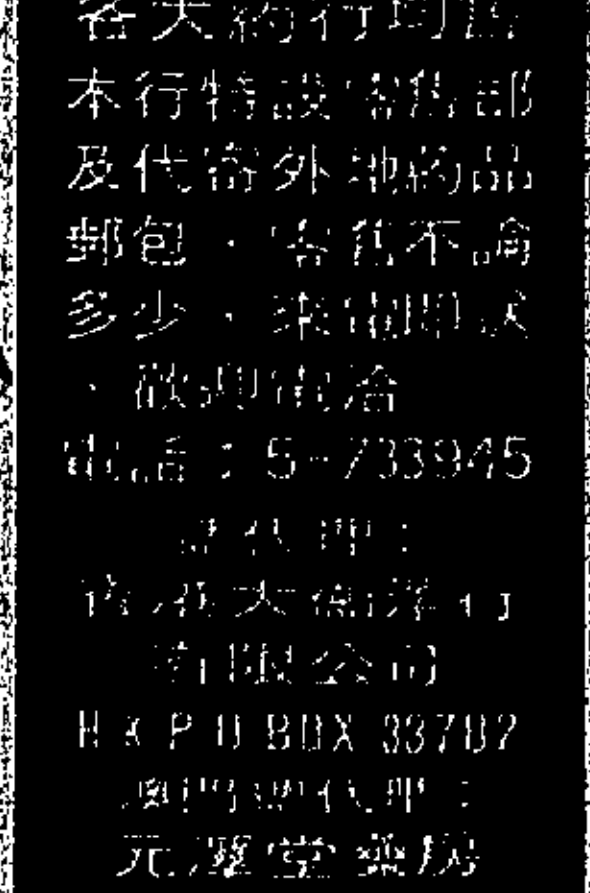 各大葯行均售
本行特設零售部
及代寄外地葯品
郵包．零售不論
多少．來電即送
．歡迎電洽
電話：5-733945
總代理：
大德洋行
有限公司
H K P O BOX 33702
澳門總代理：
元 堂藥房